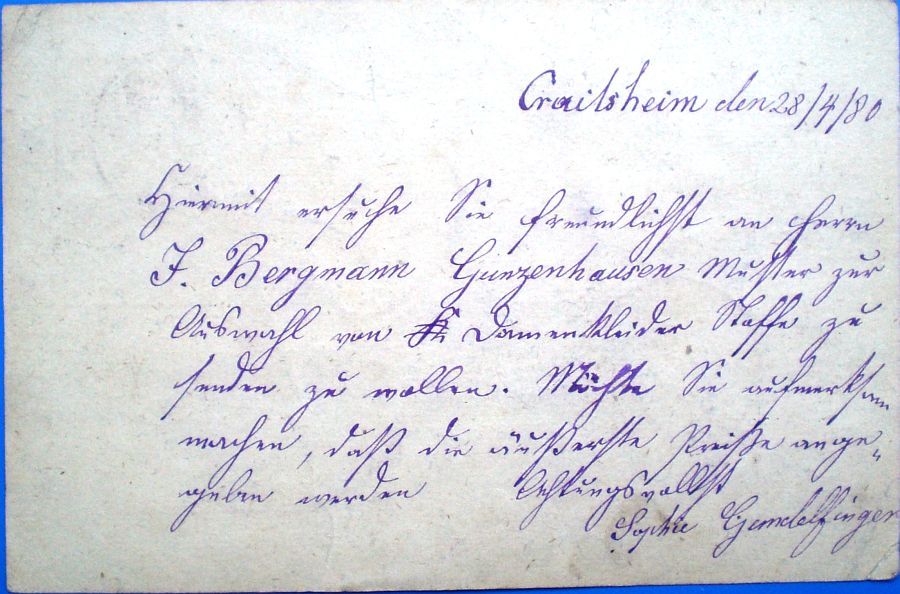 Crailsheim den 28/4/80
Hiermit ersuche Sie freundlichst an Herrn
J. Bergmann Gunzenhausen Muster zur
Auswahl von Damenkleider Stoffe zu
senden zu wollen. Möchte Sie aufmerksam
machen, daß die äußerste Preiße ange-
geben werden Achtungsvollst
Sophie Gundelfinger